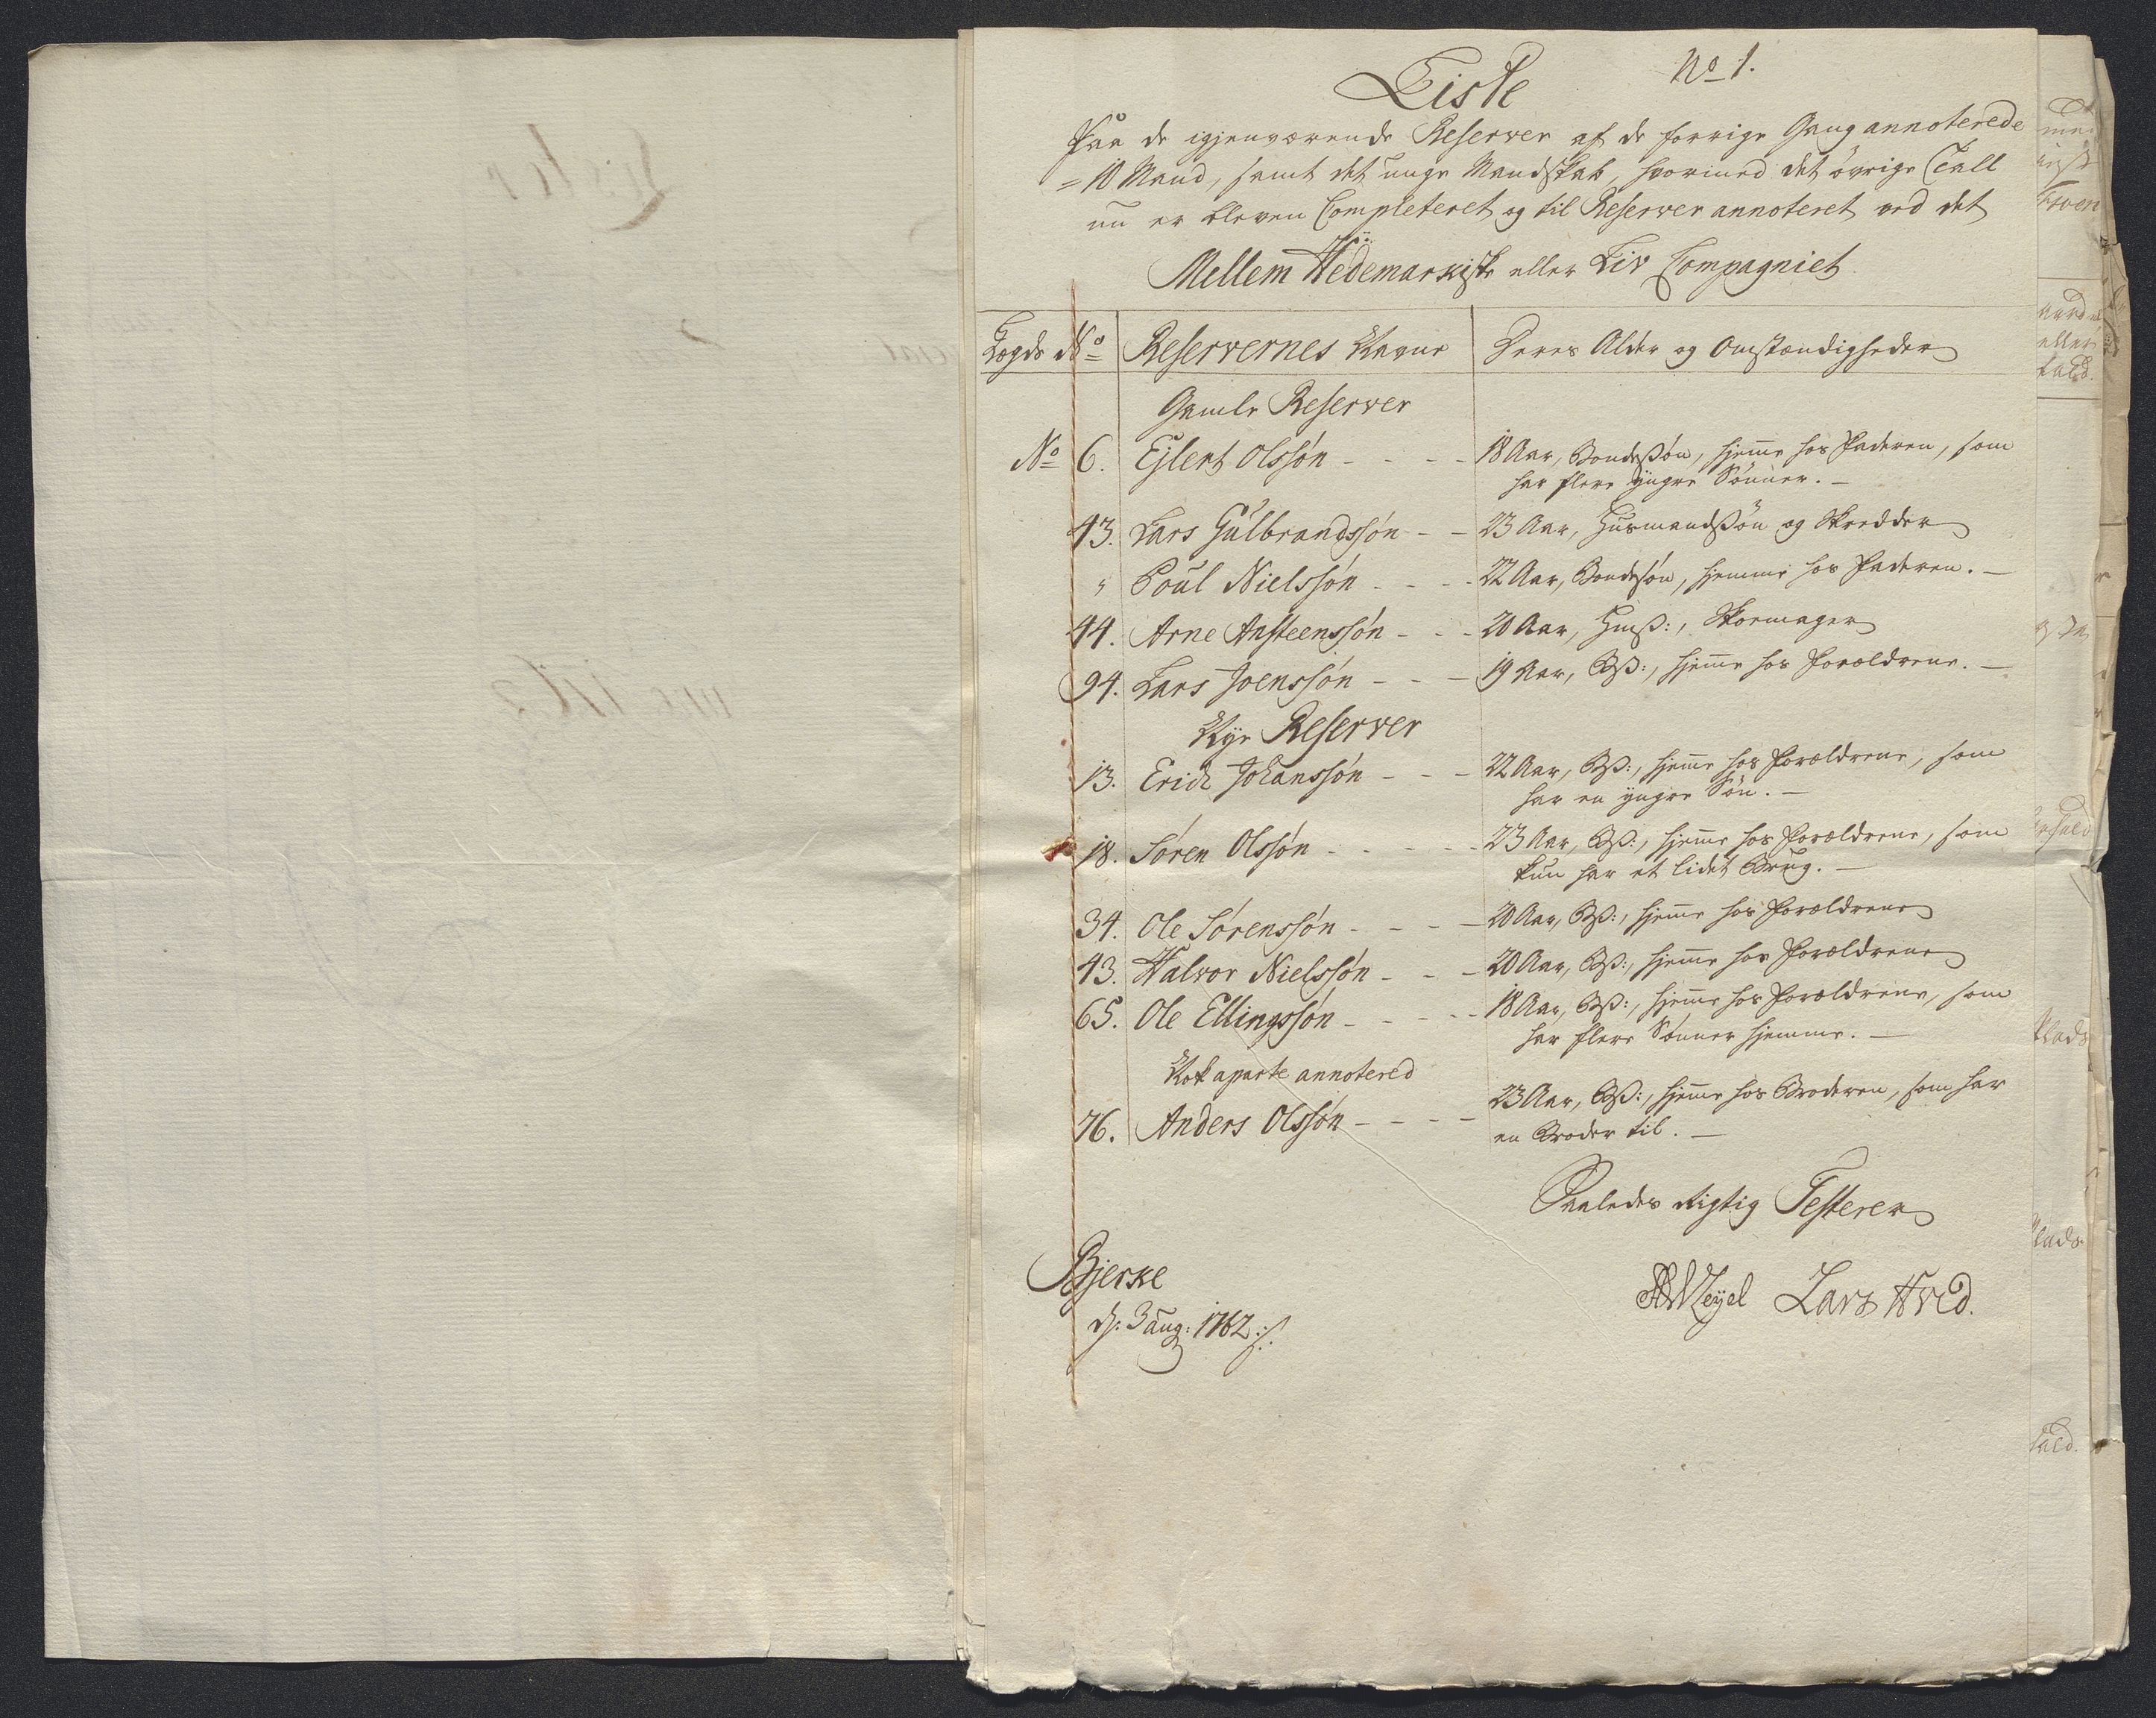 Liste
No 1.
Paa de igjenværende Reserver af de forrige Gang annoterede
= 10 Mand, samt det unge Mandskab, hvormed det øvrige Tall
nu er bleven Completeret og til Reserver annoteret ved det
Mellem Hedemarkiske eller Liv Compagniet
Lægds No | Reservernes Navne | Deres Alder og Omstændigheder
Gamle Reserver
No 6. Ejlert Olssøn - - - 18 Aar, Bondessøn, hjem̄e hos Faderen, som
har flere yngre Sønner. -
43. Lars Gulbrandssøn - - 23 Aar, Husmandssøn og Skredder
" Poul Nielssøn - - - 22 Aar, Bondesøn, hjemme hos Faderen. -
44. Arne Ansteenssøn - - - 20 Aar, Hmß:, Skoemager
94. Lars Joenssøn - - - 19 Aar, Bß:, hjem̄e hos Forældrene. -
Nye Reserver
13. Erich Johanssøn - - - 22 Aar, Bß:, hjem̄e hos Forældrene, som
har en yngre Søn. -
18. Søren Olssøn - - - - - 23 Aar, Bß:, hjem̄e hos Forældrene, som
kun har et lidet Brug. -
34. Ole Sørenssøn - - - - 20 Aar, Bß:, hjem̄e hos Forældrene
43. Halvor Nielssøn - - - 20 Aar, Bß:, hjem̄e hos Forældrene
65. Ole Ellingssøn - - - - 18 Aar, Bß:, hjem̄e hos Forældrene, som
har flere Sønner hjemme. -
Nok aparte annotered
76. Anders Olssøn - - - - 23 Aar, Bß:, hjem̄e hos Broderen, som har
en Broder til. -
Saaledes Rigtig Testerer
Bjerke
d: 3 aug: 1762 :/:
Lars Hvid.